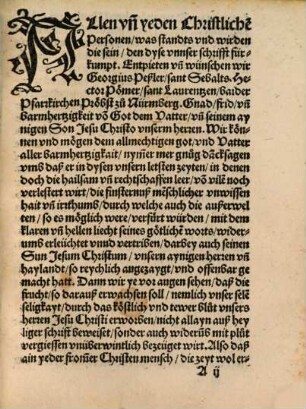 ALlen vñ yeden Christlichẽ
Personen/was standts vnd wirden
die sein/den dyse vnnser schrifft für-
kumpt. Entpieten vñ wünschen wir
Georgius Peßler/sant Sebalts. He-
ctor Pömer/sant Laurentzen/baider
Pfarkirchen Pröbst zů Nürmberg. Gnad/frid/vñ
barmhertzigkeit vō Got dem Vatter/vñ seinem ay-
nigen Son Jesu Christo vnserm herren. Wir kön-
nen vnd mögen dem allmechtigen got/vnd Vatter
aller barmhertzigkait/nyṁer mer gnůg dãcksagen
vmb daß er in dysen vnsern letsten zeyten/in denen
doch die hailsam vñ rechtschaffen leer/vō vilẽ noch
verlestert wirt/die finsternuß mẽschlicher vnwissen
hait vñ irthumb/durch welche auch die außerwel-
ten/so es möglich were/verfürt würden/mit dem
klaren vñ hellen liecht seines götlichẽ worts/wider-
umb erleüchtet vnnd vertriben/darbey auch seinen
Sun Jesum Christum/vnsern aynigen herren vñ
haylandt/so reychlich angezaygt/vnd offenbar ge
macht hatt. Dann wir ye vor augen sehen/daß die
frucht/so darauß erwachsen soll/nemlich vnser selẽ
seligkayt/durch das köstlich vnd tewer blůt vnsers
herren Jesu Christi erworben/nicht allayn auß hey
liger schrifft beweiset/sonder auch widerũb mit plůt
vergiessen vnüberwintlich bezeüget wirt. Also daß
ain yeder froṁer Christen mensch/die zeyt wol er-
A ij